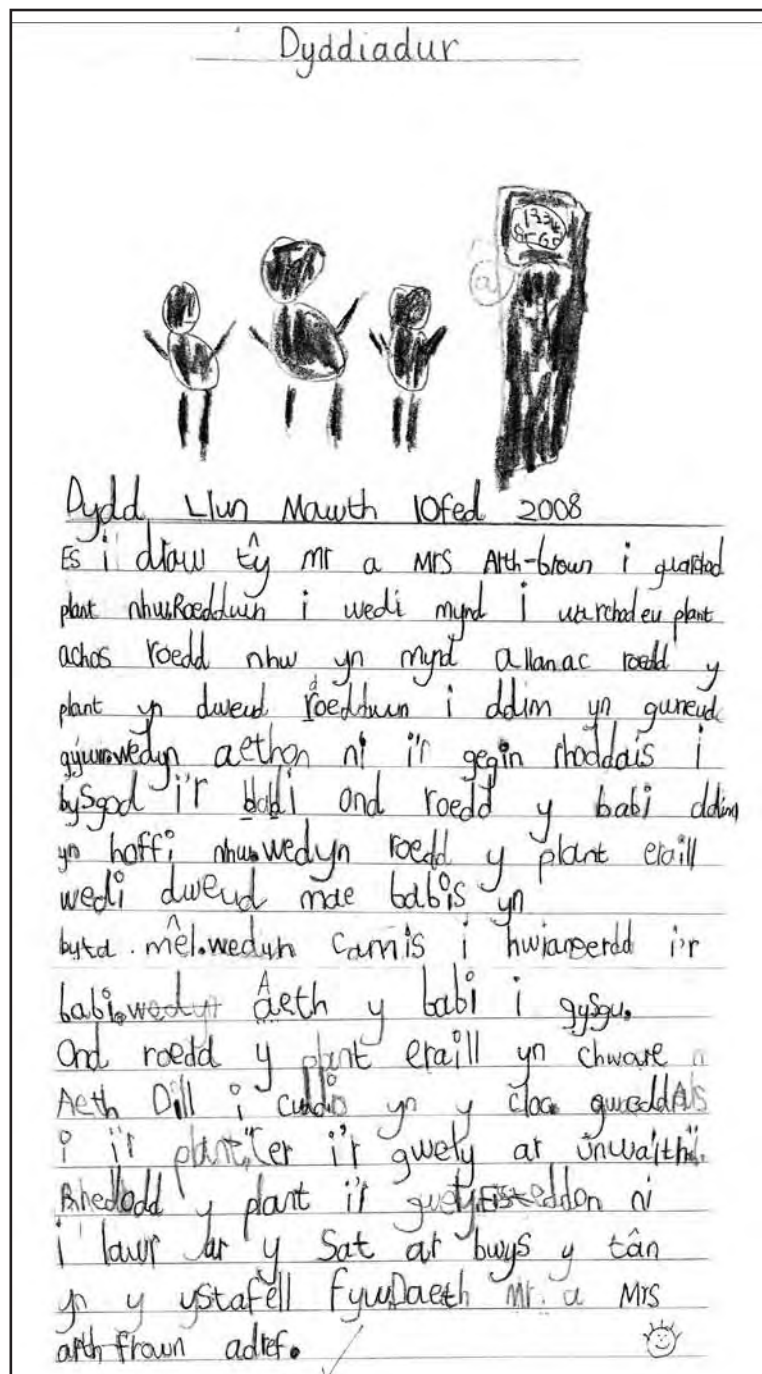 Dyddiadur
Dydd Llun Mawth 10fed 2008
Es i draw tŷ mr a Mrs Arth-brown i guarchod
plant nhw. Roedduwn i wedi mynd i warchod eu plant
achos roedd nhw yn mynd allan ac roedd y
plant yn dweud roedduwn i ddim yn guneud
wedyn aethon ni i'r gegin rhoddais i
bysgod i'r babi ond roedd y babi ddim
yn hoffi nhw. wedyn roedd y plant eraill
wedi dweud mae babis yn
bytd. mêl. wedyn canis i hwiangerdd i'r
babi. wedyn Aeth y babi i gysgu.
Ond roedd y plant eraill yn chware
Aeth Dill i cuddio yn y cloc. gwaeddAis
i i'r plant, "cer i'r gwely ar unwaith".
Rhedodd y plant i'r gwely. Eisteddon ni
i lawr ar y Sat ar bwys y tân
yn y ystafell fyw. Daeth mr. a Mrs
arth-frown adref.